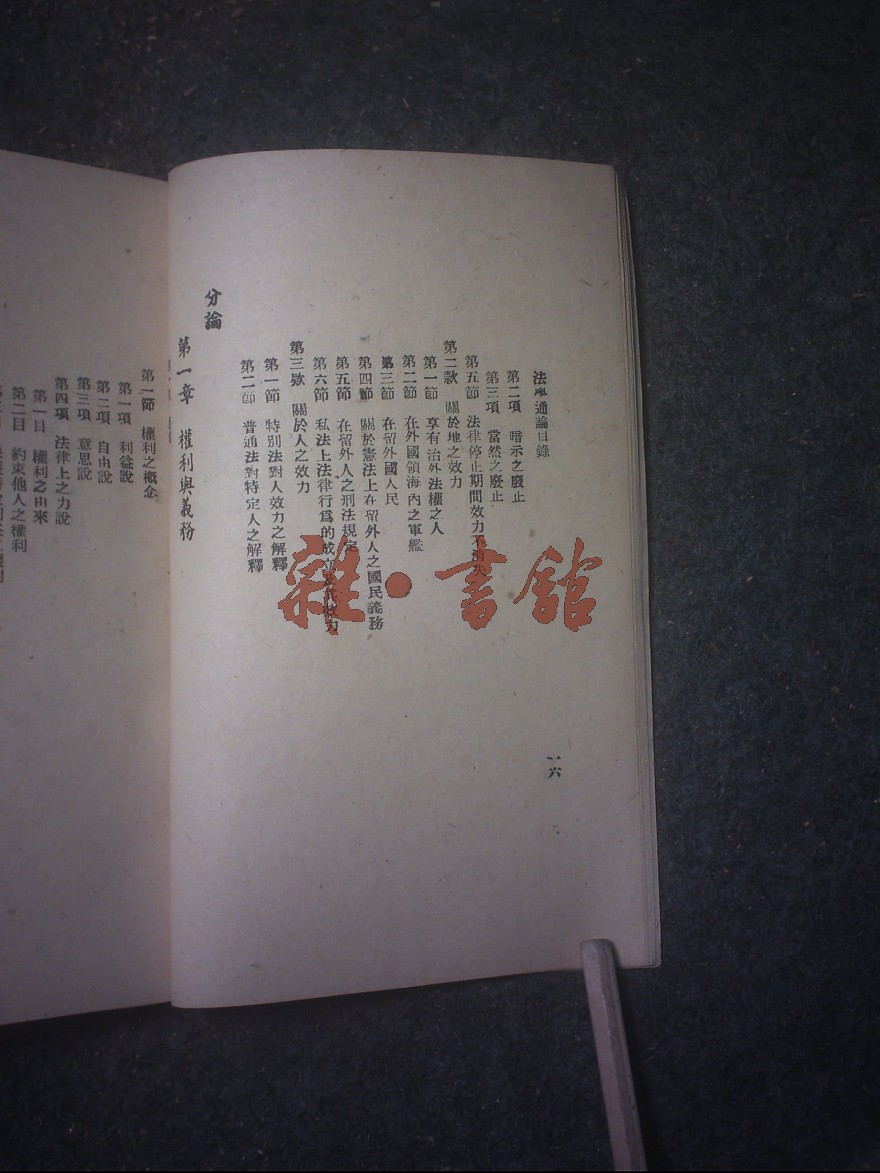 法學通論目錄
第二項 暗示之廢止
第三項 當然之廢止
第五節 法律停止期間效力不消失
第二款 關於地之效力
第一節 享有治外法權之人
第二節 在外國領海內之軍艦
第三節 在留外國人民
第四節 關於憲法上在留外人之國民義務
第五節 在留外人之刑法規定
第六節 私法上法律行爲的成立及其效力
第三欵 關於人之效力
第一節 特別法對人效力之解釋
第二節 普通法對特定人之解釋
分論
第一章 權利與義務
一六
第一節 權利之概念
第一項 利益說
第二項 自由說
第三項 意思說
第四項 法律上之力說
第一目 權利之由來
第二目 約束他人之權利
雜·書館